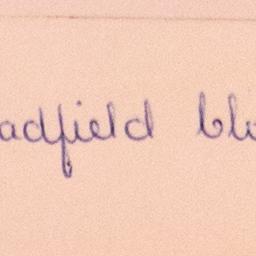 adfield blo